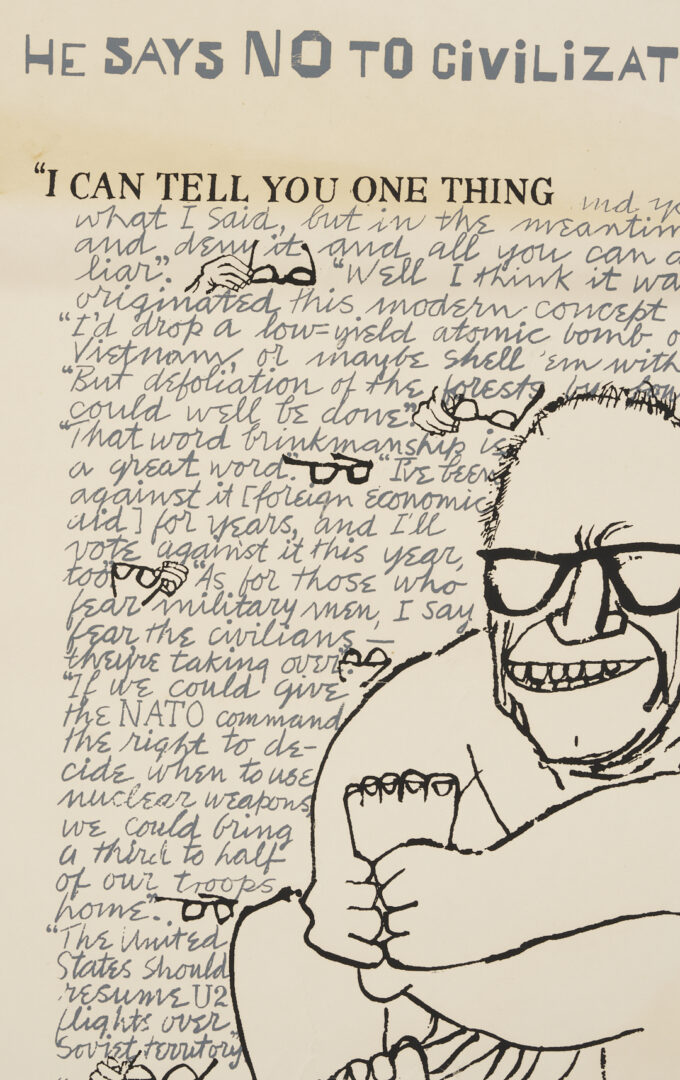 HE SAYS NO TO CiViLiZAT
“I CAN TELL YOU ONE THING
what I said, but in the meantim
and deny it, and all you can d
liar”. “Well I think it wa
originated this modern concept
“I'd drop a low=yield atomic bomb o
Vietnam, or maybe shell 'em with
“But defoliation of the forests
could well be done”.
“That word brinkmanship is
a great word.” “I've been
against it [foreign economic
aid] for years, and I'll
vote against it this year,
too” “As for those who
fear military men, I say
fear the civilians —
they're taking over.”
“If we could give
the NATO command
the right to de-
cide when to use
nuclear weapons,
we could bring
a third to half
of our troops
home”.
“The United
States should
resume U2
flights over
Soviet territory”